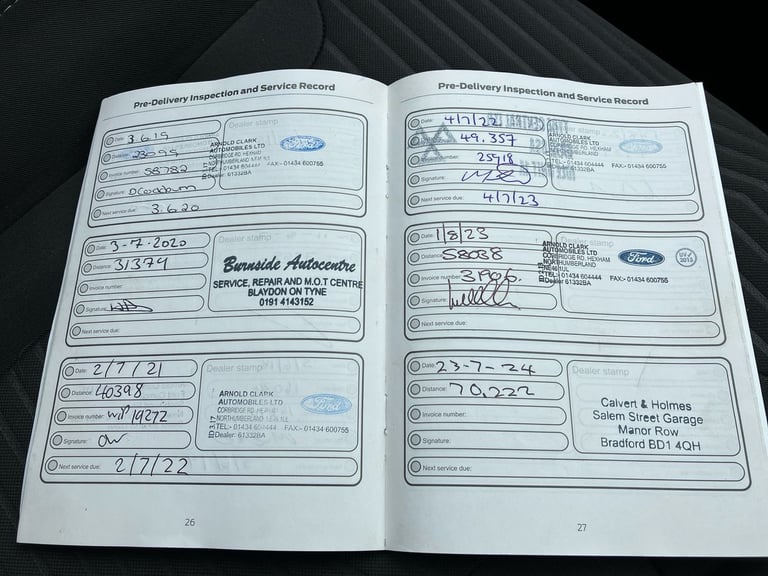 Pre-Delivery Inspection and Service Record
Date: 3.6.19
Distance:
Invoice number: 58782
Signature:
Next service due: 3.6.20
Dealer stamp
ARNOLD CLARK
AUTOMOBILES LTD
CORBRIDGE RD, HEXHAM
NORTHUMBERLAND
TEL:- 01434 604444 FAX:- 01434 600755
Dealer: 61332BA
Date: 3-7-2020
Distance: 31379
Invoice number:
Signature:
Next service due:
Dealer stamp
Burnside Autocentre
SERVICE, REPAIR AND M.O.T CENTRE
BLAYDON ON TYNE
0191 4143152
Date: 2/7/21
Distance: 40398
Invoice number: WIP 19272
Signature:
Next service due: 2/7/22
Dealer stamp
ARNOLD CLARK
AUTOMOBILES LTD
CORBRIDGE RD, HEXHAM
NORTHUMBERLAND
TEL:- 01434 604444 FAX:- 01434 600755
Dealer: 61332BA
Ford
26
Pre-Delivery Inspection and Service Record
Date: 4/7/22
49.357
Invoice number: 25918
Signature:
Next service due: 4/7/23
Dealer stamp
ARNOLD CLARK
AUTOMOBILES LTD
CORBRIDGE RD, HEXHAM
NORTHUMBERLAND
TEL:- 01434 604444 FAX:- 01434 600755
Dealer: 61332BA
Date: 1/8/23
Distance: 58038
Invoice number:
Signature:
Next service due:
Dealer stamp
ARNOLD CLARK
AUTOMOBILES LTD
CORBRIDGE RD, HEXHAM
NORTHUMBERLAND
TEL:- 01434 604444 FAX:- 01434 600755
Dealer 61332BA
Ford
Date: 23-7-24
Distance: 70,222
Invoice number:
Signature:
Next service due:
Dealer stamp
Calvert & Holmes
Salem Street Garage
Manor Row
Bradford BD1 4QH
27